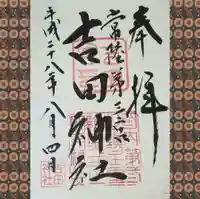 奉拝
常陸第三宮
吉田神社
平成二十八年八月四日